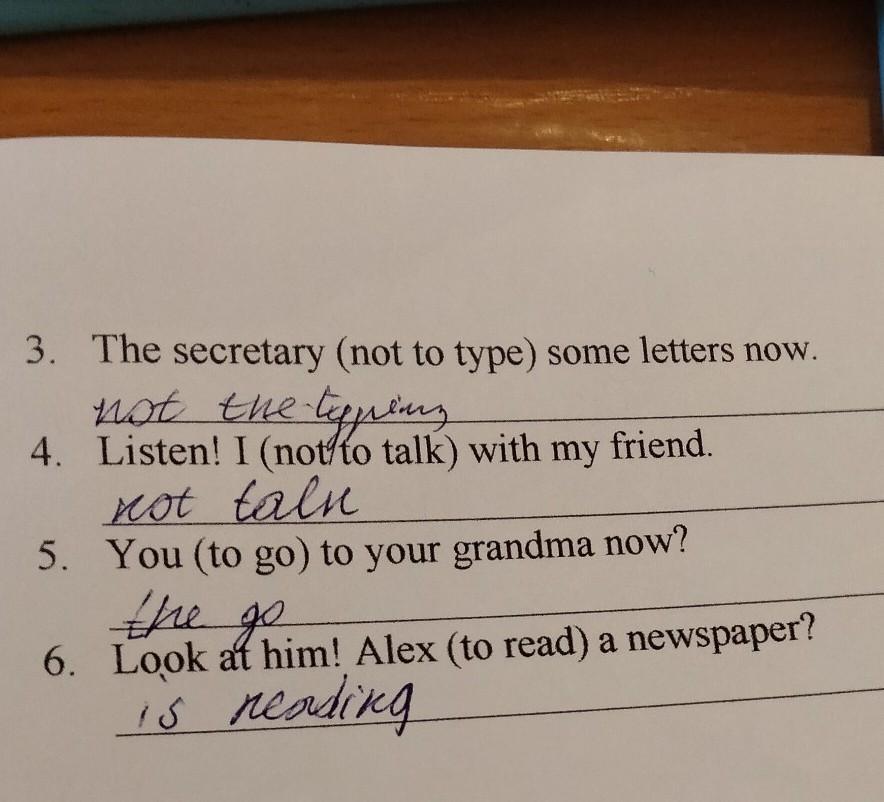 3. The secretary (not to type) some letters now.
not the typing
4. Listen! I (not to talk) with my friend.
not talk
5. You (to go) to your grandma now?
the go
6. Look at him! Alex (to read) a newspaper?
is reading